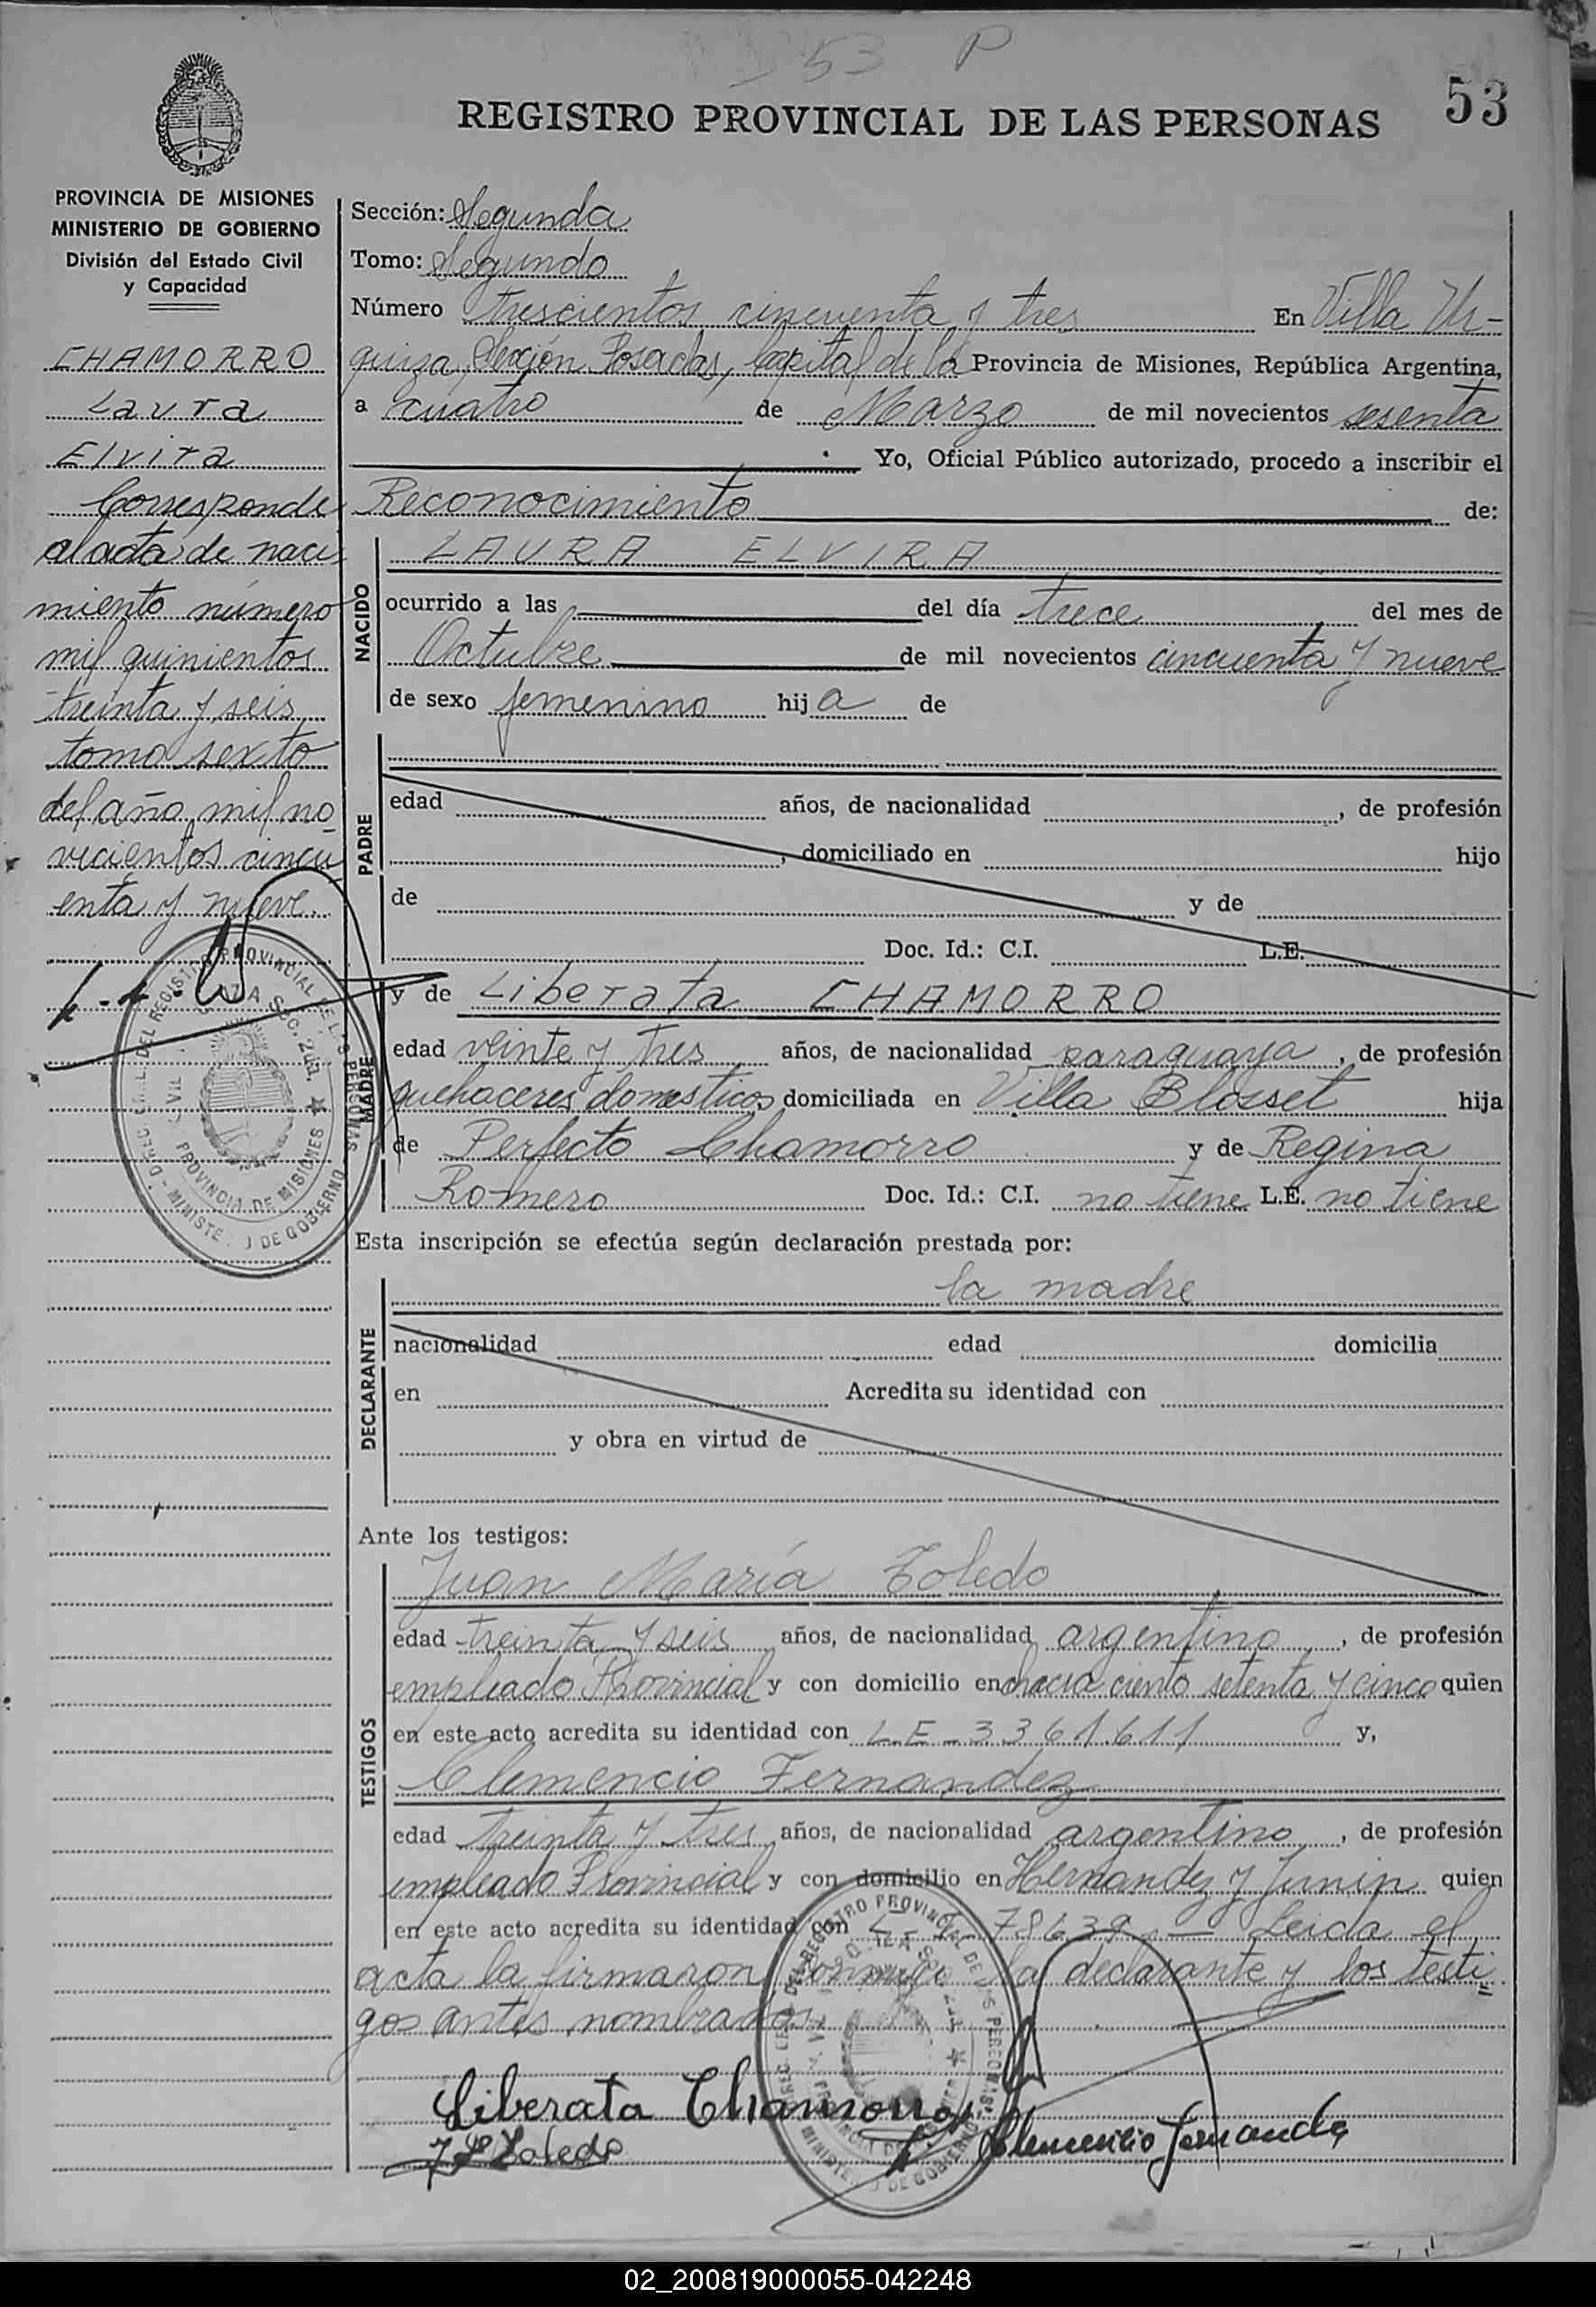 53 P
53
REGISTRO PROVINCIAL DE LAS PERSONAS
PROVINCIA DE MISIONES
MINISTERIO DE GOBIERNO
División del Estado Civil
y Capacidad
CHAMORRO
Laura
Elvira
Corresponde
al acta de naci
miento número
mil quinientos
treinta y seis
tomo sexto
del año mil no
vecientos cincu
enta y nueve.
Sección: Segunda
Tomo: Segundo
Número trescientos cincuenta y tres En Villa Ur-
quiza, Sección Posadas, Capital de la Provincia de Misiones, República Argentina,
a cuatro de Marzo de mil novecientos sesenta
Yo, Oficial Público autorizado, procedo a inscribir el
Reconocimiento de:
NACIDO
LAURA ELVIRA
ocurrido a las del día trece del mes de
Octubre de mil novecientos cincuenta y nueve
de sexo femenino hija de
PADRE
edad años, de nacionalidad , de profesión
, domiciliado en hijo
de y de
Doc. Id.: C.I. L.E.
MADRE
y de Liberata CHAMORRO
edad veinte y tres años, de nacionalidad paraguaya, de profesión
quehaceres domesticos domiciliada en Villa Blosset hija
de Perfecto Chamorro y de Regina
Romero Doc. Id.: C.I. no tiene L.E. no tiene
Esta inscripción se efectúa según declaración prestada por:
DECLARANTE
la madre
nacionalidad edad domicilia
en Acredita su identidad con
y obra en virtud de
Ante los testigos:
TESTIGOS
Juan María Toledo
edad treinta y seis años, de nacionalidad argentino, de profesión
empleado Provincial y con domicilio en chacra ciento setenta y cinco quien
en este acto acredita su identidad con L.E - 3361611 y,
Clemencio Fernandez
edad treinta y tres años, de nacionalidad argentino, de profesión
empleado Provincial y con domicilio en Hernandez y Junin quien
en este acto acredita su identidad con 78639 — Leida el
acta la firmaron conmigo la declarante y los testi
gos antes nombrados
Liberata Chamorro
Toledo
Clemencio Fernande
DEL REGISTRO PROVINCIAL DE LAS PERSONAS
PROVINCIA DE MISIONES
MINISTE DE GOBIERNO
02_200819000055-042248